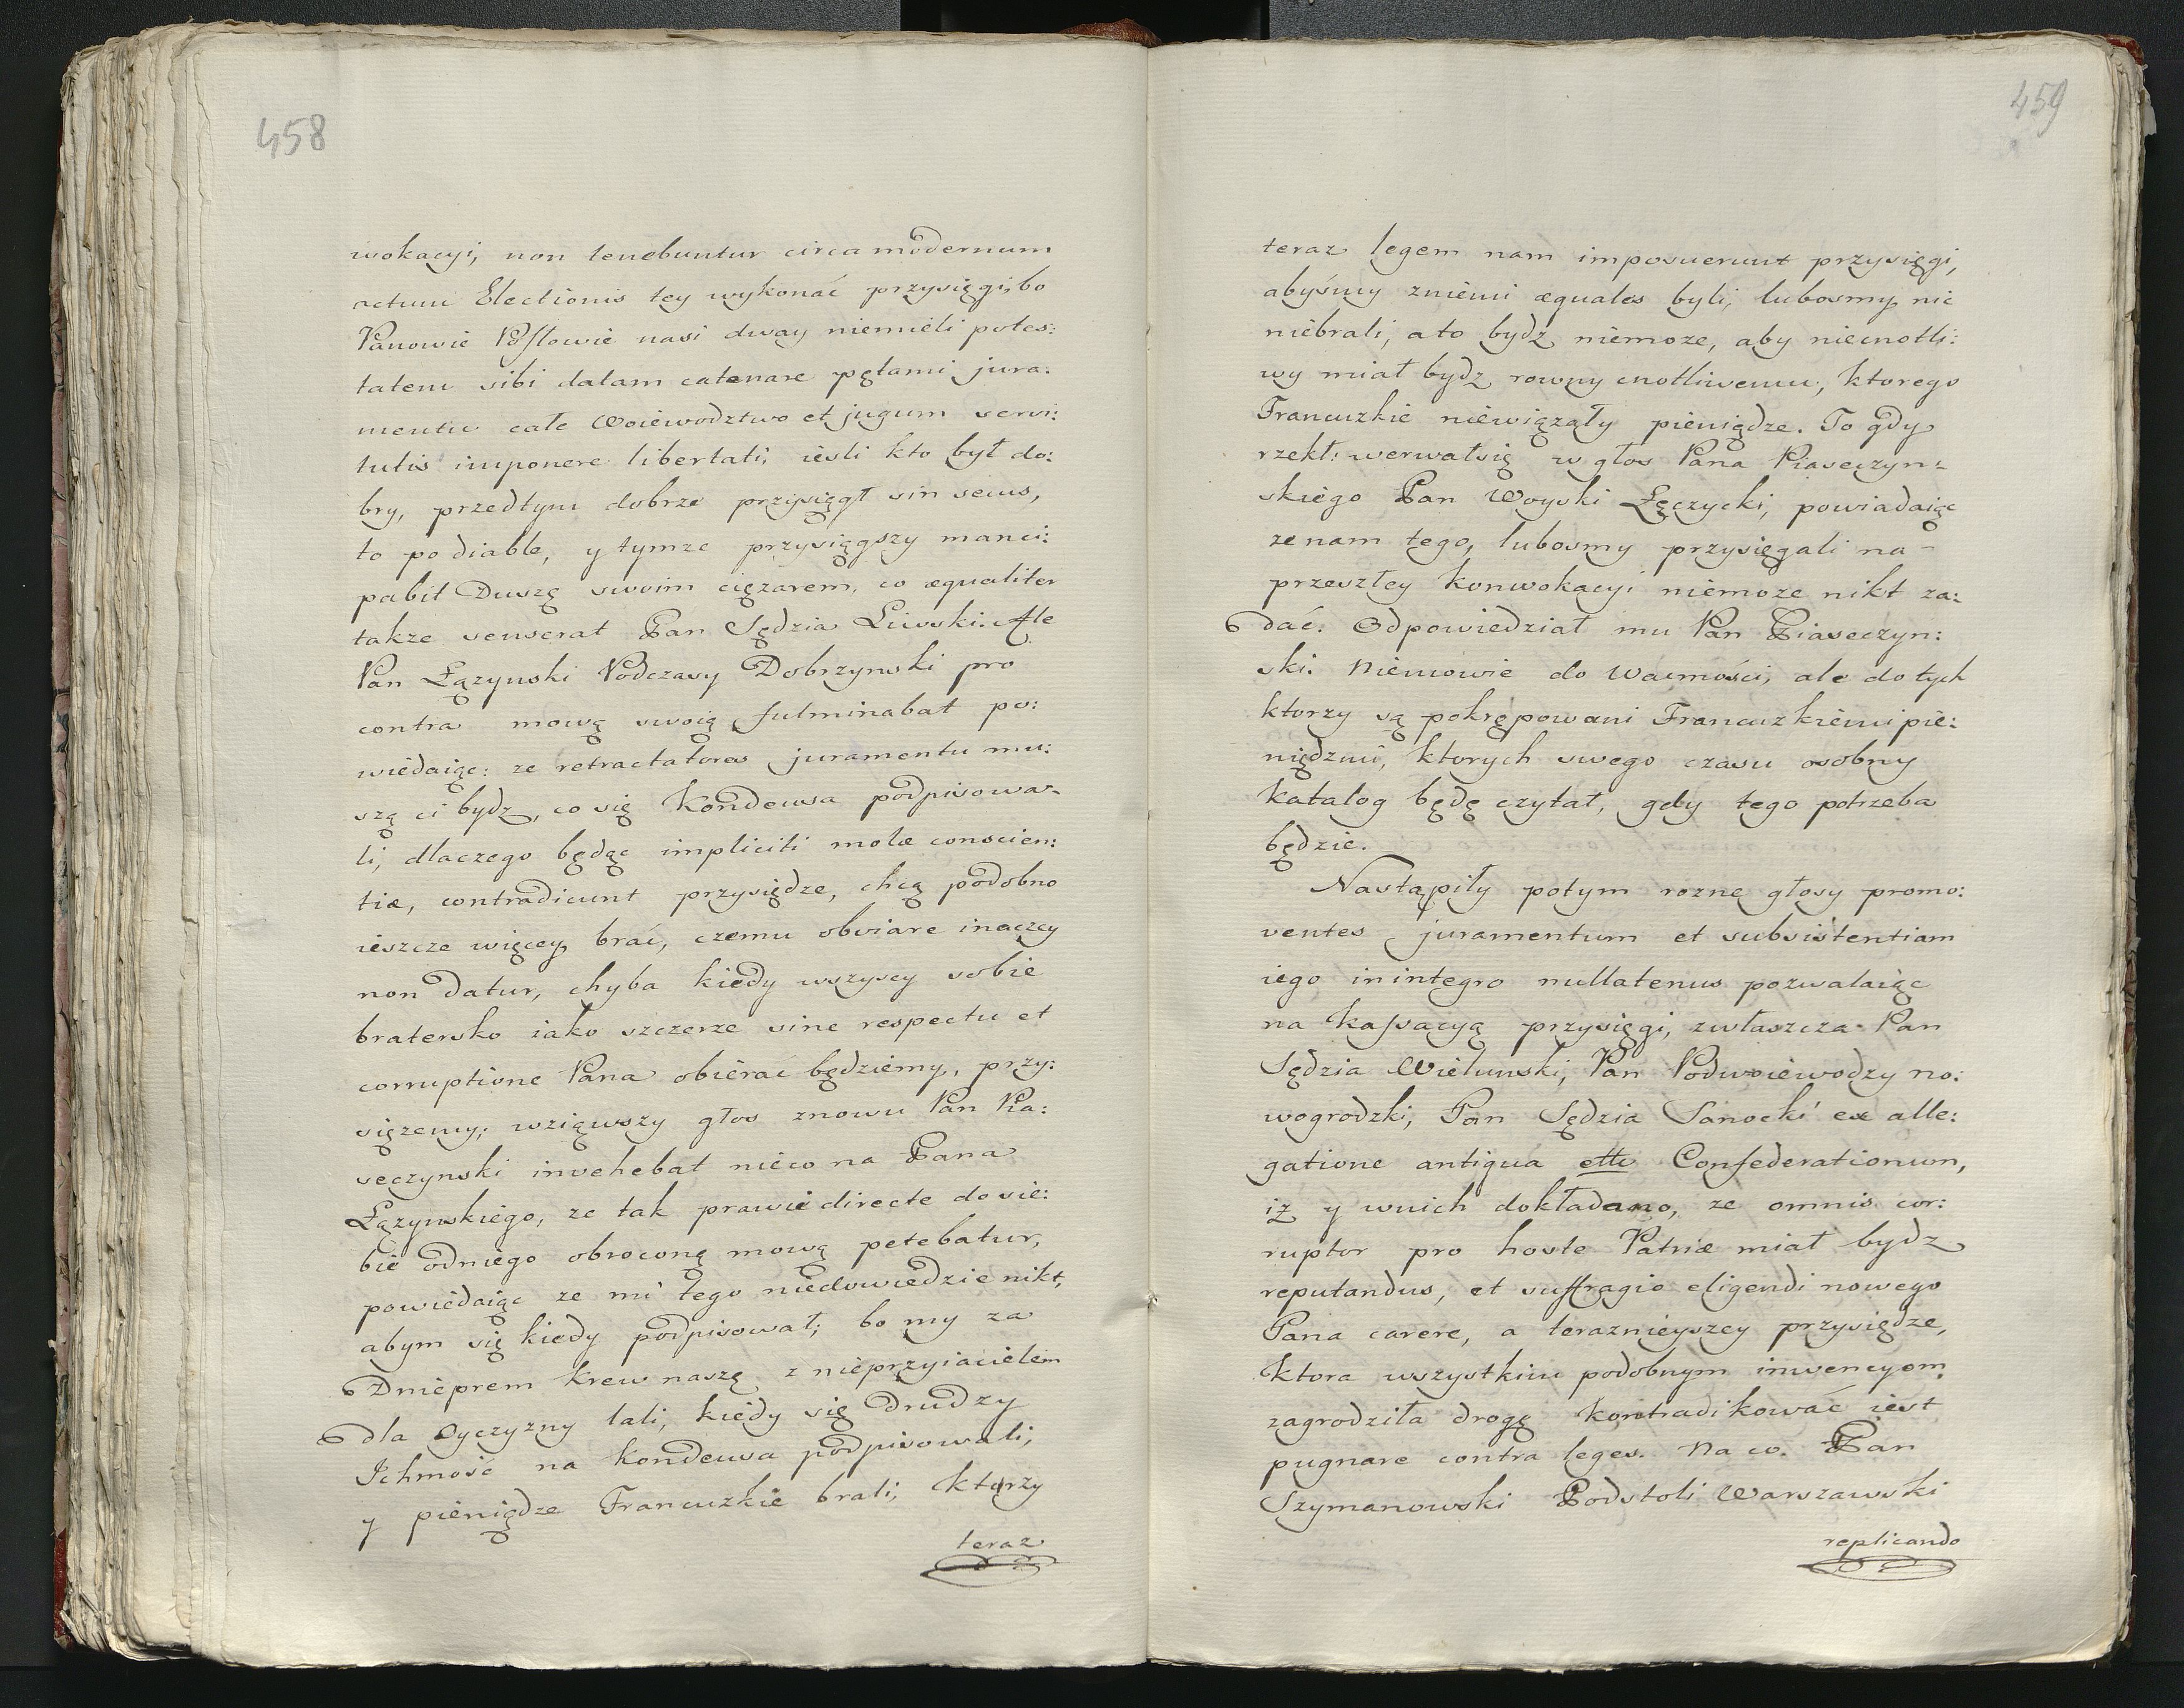 458
wokacyi, non tenebuntur circa modernum
actum Electionis tey wykonać przysięgi, bo
Panowie Posłowie nasi dway niemieli potes:
tatem sibi datam catenare pętami jura:
mentu całe Woiewodztwo et jugum servi:
tutis imponere libertati; iesli kto był do:
bry, przedtym dobrze przysiągł sin secus,
to po diable, y tymze przysiągszy manci:
pabit Duszę swoim cięzarem, co æqualiter
takze senserat Pan Sędzia Liwski. Ale
Pan Łązynski Podczasy Dobrzynski pro
contra mową swoią fulminabat po:
wiedaiąc: ze retractatores juramentu mu:
szą ci bydz, co się Kondeusa podpisowa-
li, dlaczego będąc impliciti mole conscien:
tiæ, contradicunt przysiędze, chcą podobno
ieszcze więcey brać, czemu obviare inaczey
non datur, chyba kiedy wszyscy sobie
bratersko iako szczerze sine respectu et
corruptione Pana obierać będziemy, przy:
sięzemy; wziąwszy głos znowu Pan Pia:
seczynski invehebat nieco na Pana
Łązynskiego, ze tak prawie directe do sie:
bie odniego obroconą mową petebatur,
powiedaiąc ze mi tego niedowiedzie nikt,
abym się kiedy podpisował; bo my za
Dnieprem krew naszę z nieprzyiacielem
dla Oyczyzny lali, kiedy się drudzy
Ichmość na Kondeusa podpisowali,
y pieniądze Francuzkie brali, ktorzy
teraz
459
teraz legem nam imposuerunt przysięgi,
abyśmy zniemi æquales byli, lubosmy nic
niebrali, a to bydz niemoze, aby niecnotli:
wy miał bydz rowny cnotliwemu, ktorego
Francuzkie niewiązały pieniądze. To gdy
rzekł: werwałsię w głos Pana Piaseczyn:
skiego Pan Woyski Łęczycki, powiadaiąc
ze nam tego, lubosmy przysięgali na-
przeszłey konwokacyi niemoze nikt za:
dać. Odpowiedział mu Pan Piaseczyn:
ski. Niemowie do Wacmości, ale do tych
ktorzy są pokrępowani Francuzkiemi pie:
niędzmi, ktorych swego czasu osobny
katalog będę czytał, gdy tego potrzeba
będzie.
Nastąpiły potym rozne głosy promo:
ventes juramentum et subsistentiam
iego in integro nullatenus pozwalaiąc
na kassacyą przysięgi, zwłaszcza Pan
Sędzia Wielunski, Pan Podwoiewodzy no:
wogrodzki, Pan Sędzia Sanocki ex alle:
gatione antiqua ette Confederationum,
iz y wnich dokładano, ze omnis cor:
ruptor pro hoste Patriæ miał bydz
reputandus, et suffragio eligendi nowego
Pana carere, a teraznieyszey przysiędze,
ktora wszystkim podobnym inwencyom
zagrodziła drogę kontradikować iest
pugnare contra leges. Na co. Pan
Szymanowski Podstoli Warszawski
replicando